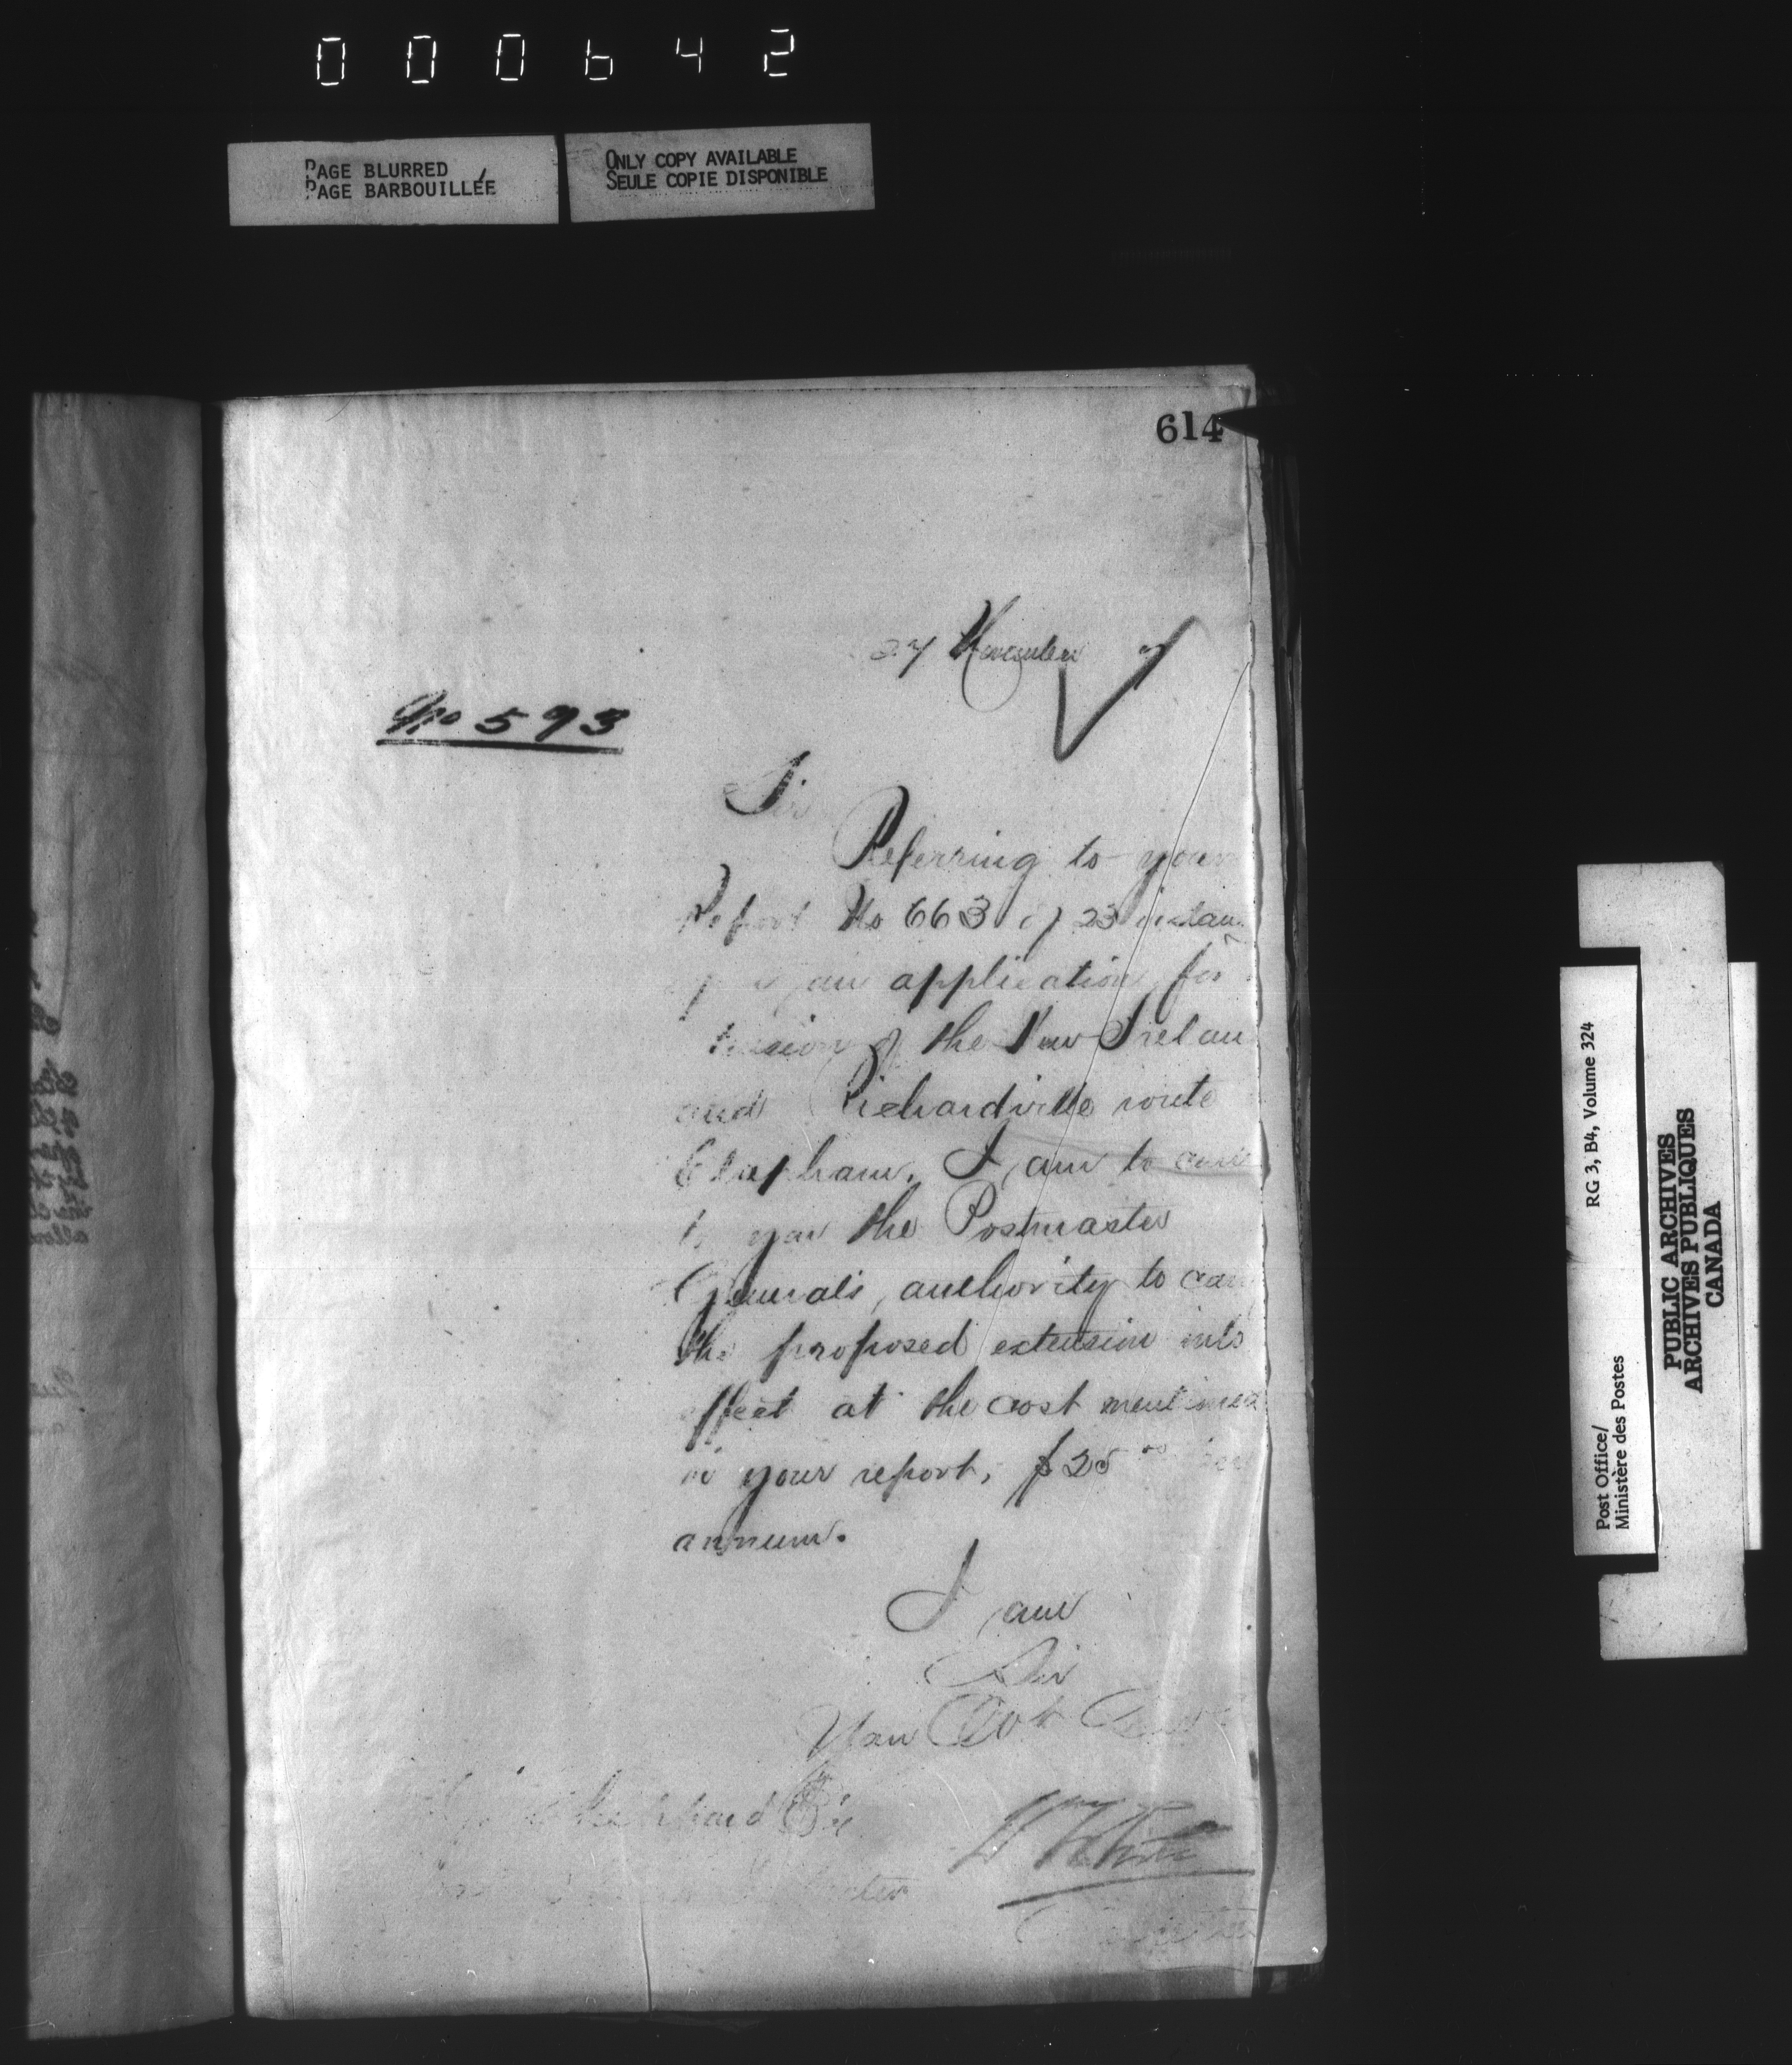 000642
PAGE BLURRED
PAGE BARBOUILLÉE
ONLY COPY AVAILABLE
SEULE COPIE DISPONIBLE
614
27 November
No 593
Sir
Referring to your
Report No 663 of 23 instan
an application for
tension of the New Irelan
and Richardville route
Elapham, I am to
to you the Postmaster
Generals, authority to
the proposed extension into
effect at the cost mentioned
in your report, $25
annum.
I am
Sir
Your Obt
White
RG 3, B4, Volume 324
Post Office/
Ministère des Postes
PUBLIC ARCHIVES
ARCHIVES PUBLIQUES
CANADA